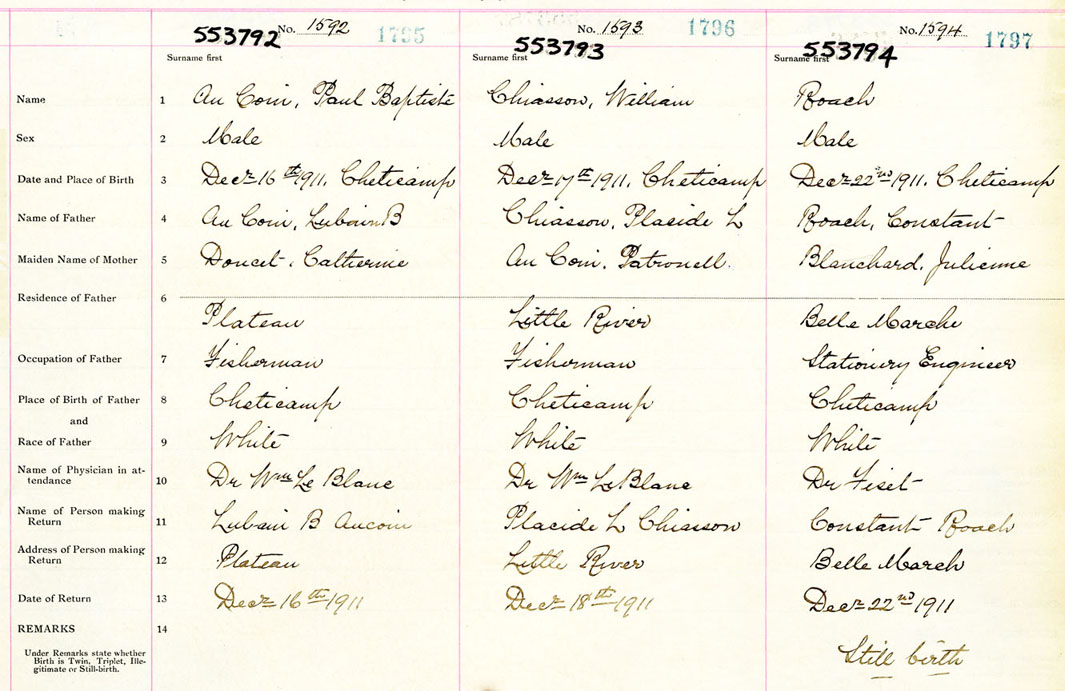 No. 1592 1795 No. 1593 1796 No. 1594 1797
553792 553793 553794
Surname first Surname first Surname first
Name 1 Au Coin, Paul Baptiste Chiasson, William Roach
Sex 2 Male Male Male
Date and Place of Birth 3 Decr 16th 1911, Cheticamp Decr 17th 1911, Cheticamp Decr 22nd 1911, Cheticamp
Name of Father 4 Au Coin, Lubain B Chiasson, Placide L Roach, Constant
Maiden Name of Mother 5 Doucet, Catherine Au Coin, Patronell. Blanchard, Julienne
Residence of Father 6
Plateau Little River Belle Marche
Occupation of Father 7 Fisherman Fisherman Stationery Engineer
Place of Birth of Father 8 Cheticamp Cheticamp Cheticamp
and
Race of Father 9 White White White
Name of Physician in at-
tendance 10 Dr Wm Le Blanc Dr Wm LeBlanc Dr Fiset
Name of Person making
Return 11 Lubain B Aucoin Placide L Chiasson Constant Roach
Address of Person making
Return 12 Plateau Little River Belle March
Date of Return 13 Decr 16th 1911 Decr 18th 1911 Decr 22nd 1911
REMARKS 14
Under Remarks state whether
Birth is Twin, Triplet, Ille-
gitimate or Still-birth.
Still birth